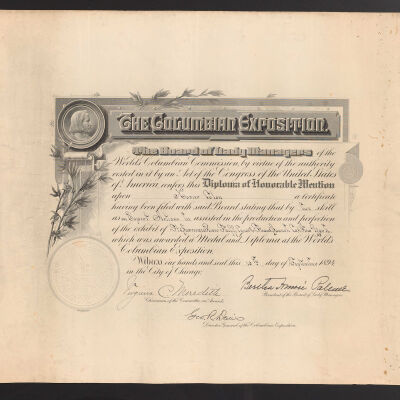 The Columbian Exposition.
The Board of Lady Managers of the
World's Columbian Commission by virtue of the authority
vested in it by an Act of the Congress of the United States
of America confers this Diploma of Honorable Mention
upon a certificate
having been filed with said Board stating that by her skill
as an Expert Artisan assisted in the production and perfection
of the exhibit of
which was awarded a Medal and Diploma at the World's
Columbian Exposition.
Witness our hands and seal this day of 1894
in the City of Chicago.
Virginia C. Meredith
Chairman of the Committee on Awards.
Bertha Honoré Palmer
President of the Board of Lady Managers.
Geo R Davis
Director General of the Columbian Exposition.